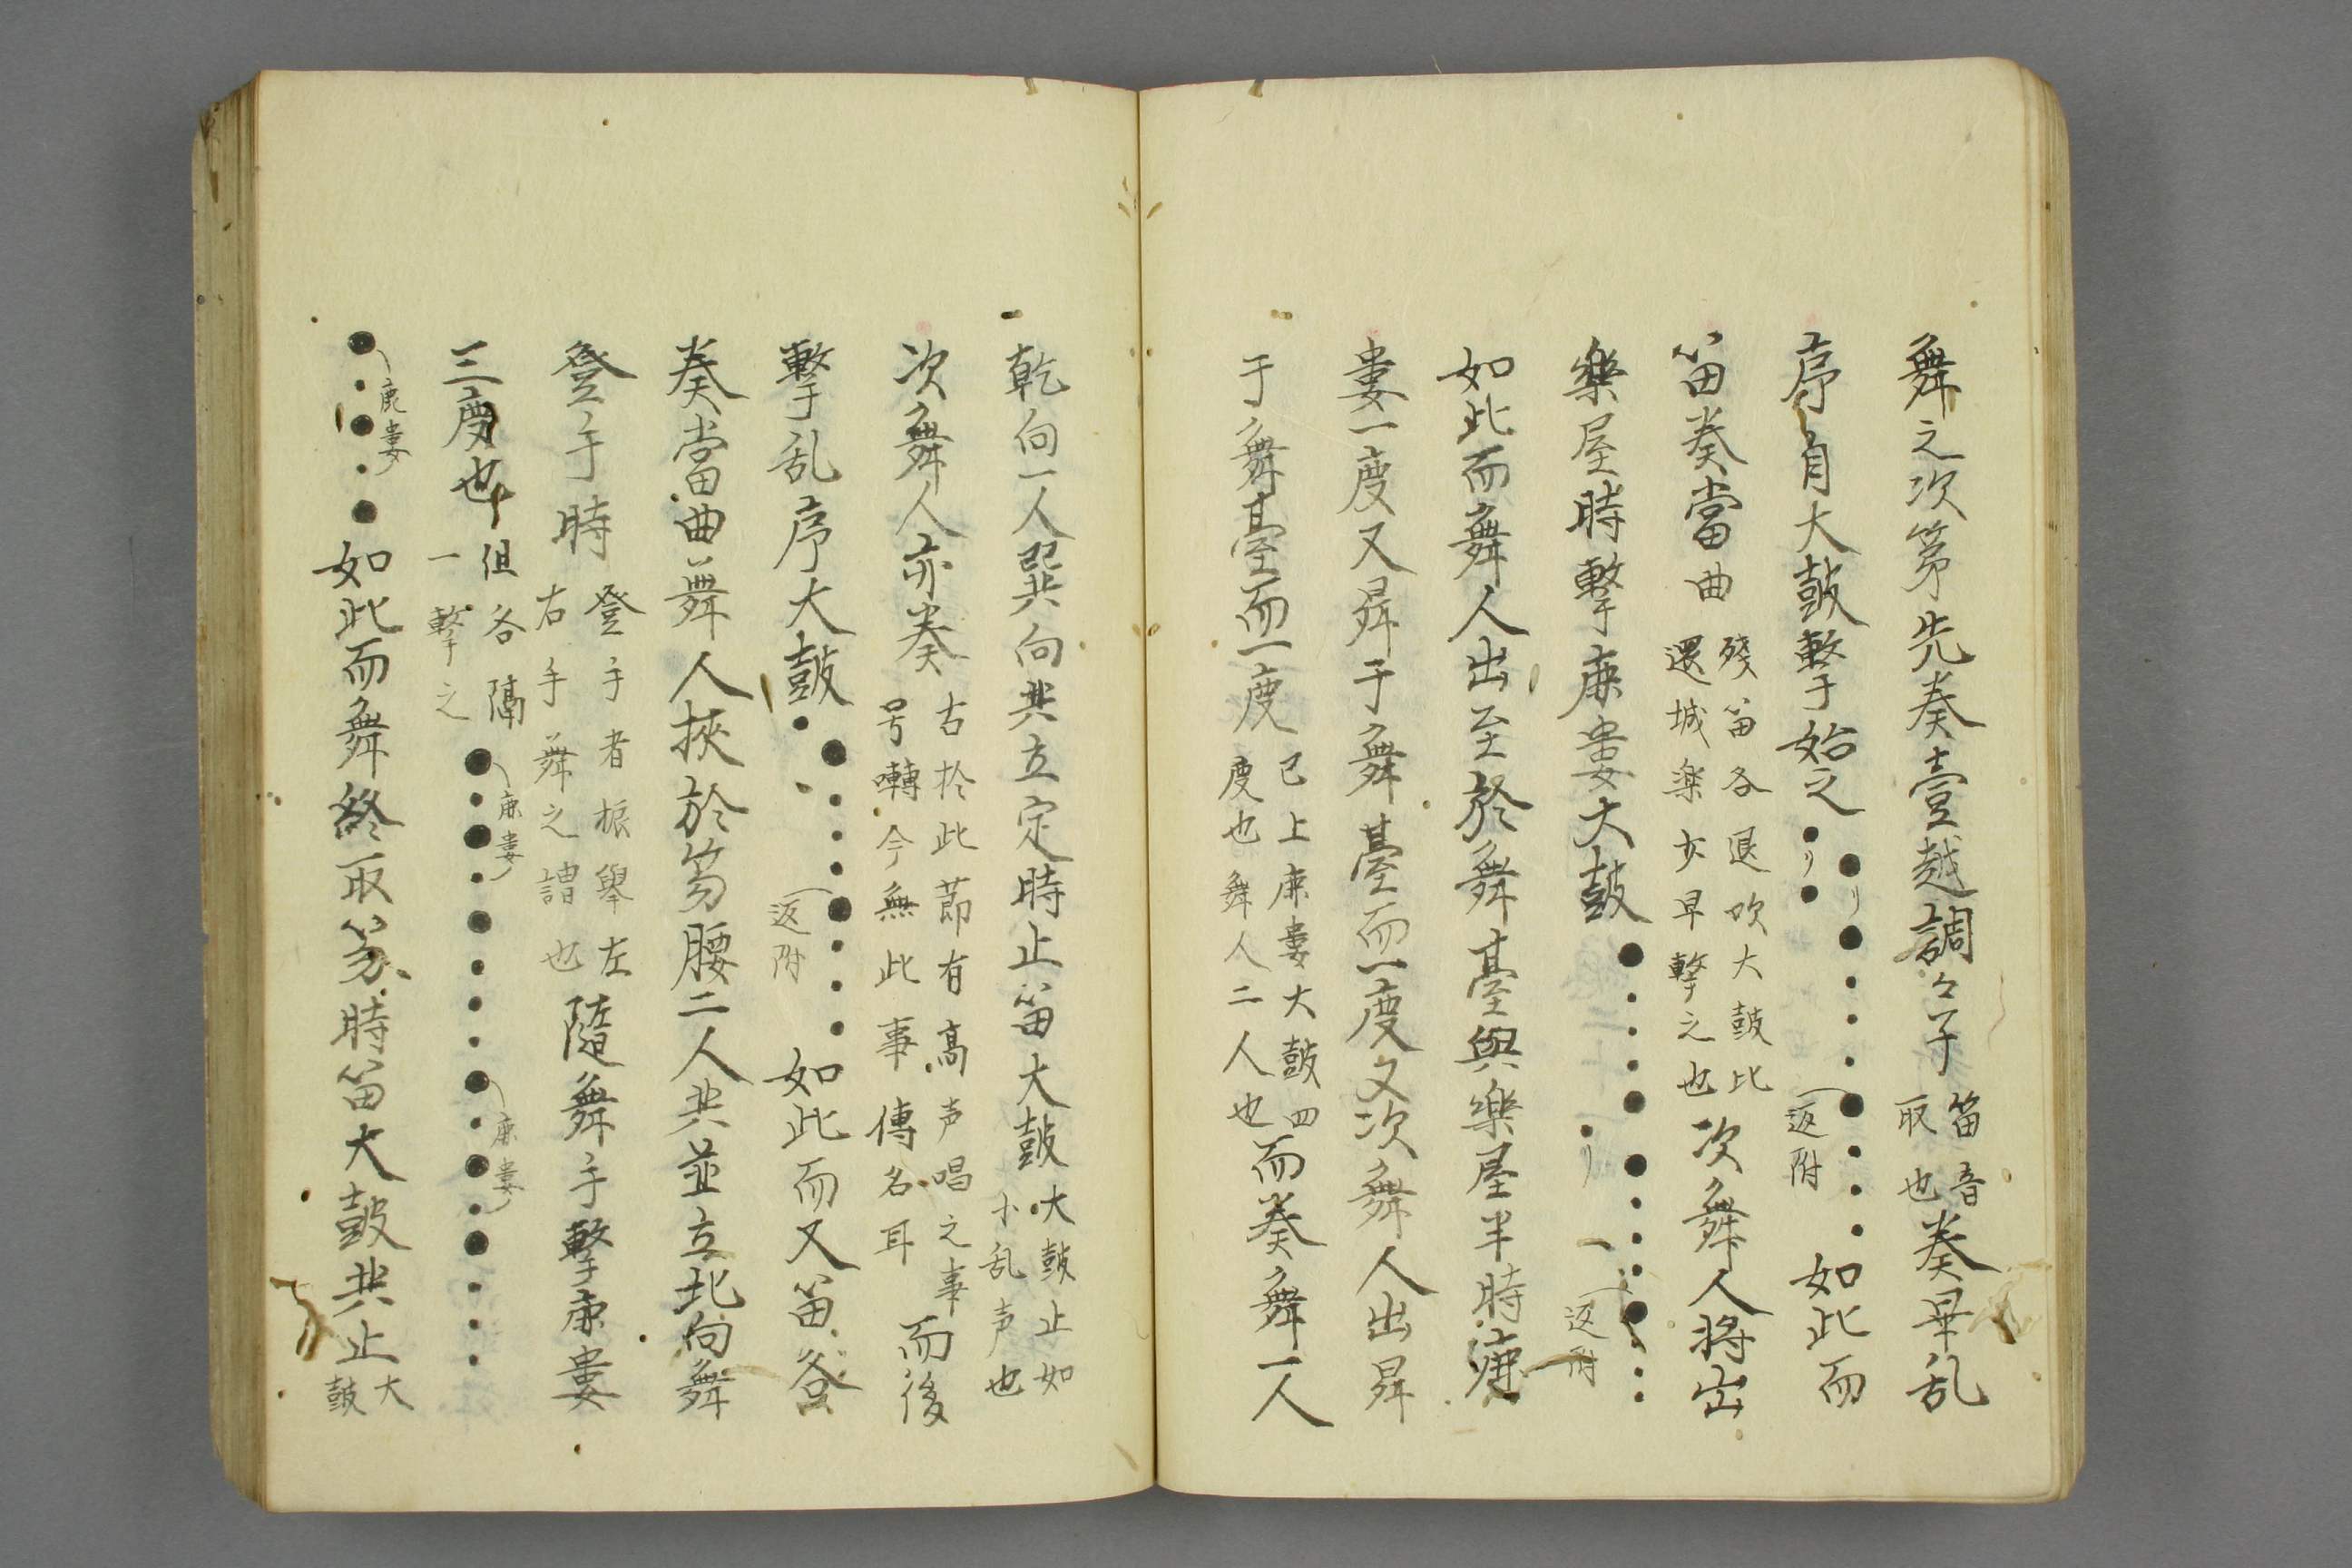 舞之次第先奏壹越調々子
笛音
取也
奏畢乱
序自大鼓擊始之
返附
如此而
笛奏當曲
殘笛各退吹大鼓比
還城楽亦早擊之也
次舞人將出
楽屋時擊鹿婁大鼓
返附
如此而舞人出至於舞臺與楽屋半時
婁一度又昇于舞臺而一度又次舞人出昇
于舞臺而一度
已上鹿婁大鼓四
度也舞人二人也
而奏舞一人
乾向一人巽向共立定時止笛大鼓
大鼓止如
小乱声也
次舞人亦奏
古於此節有高声唱之事
号囀今無此事傳名耳
而後
擊乱序大鼓
返附
如此而又笛各
奏當曲舞人挾於笏腰二人共並立北向舞
登手時
登手者振舉左
右手舞之謂也
隨舞手擊鹿婁
三度也
但各隔
一擊之
鹿婁
鹿婁
鹿婁
如此而舞終取笏時笛大鼓共止
大
鼓